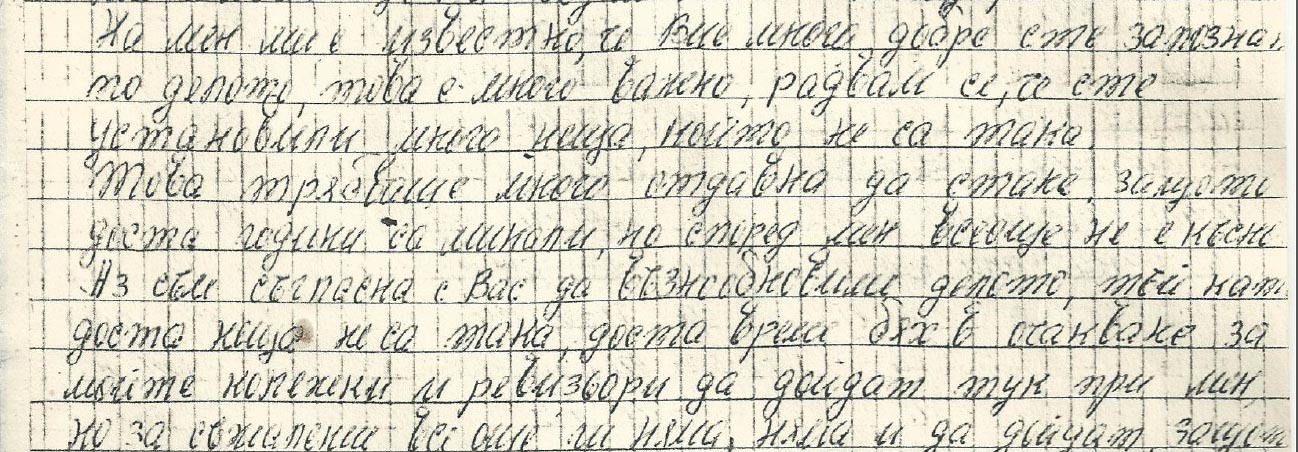 На мен ми е известно, че Вие много добре сте запозна
по делото, това е много важно, радвам се, че сте
установили много неща, които не са така.
Това трябваше много отдавна да стане, защото
доста години са минали, но според мен все още не е късн
Аз съм съгласна с Вас да възнообновими делото, тъй кат
доста неща не са така, доста време бях в очакване за
мойте колежки и ревизьори да дойдат тук при мен,
но за съжаление все още ги няма, няма и да дойдат, защот